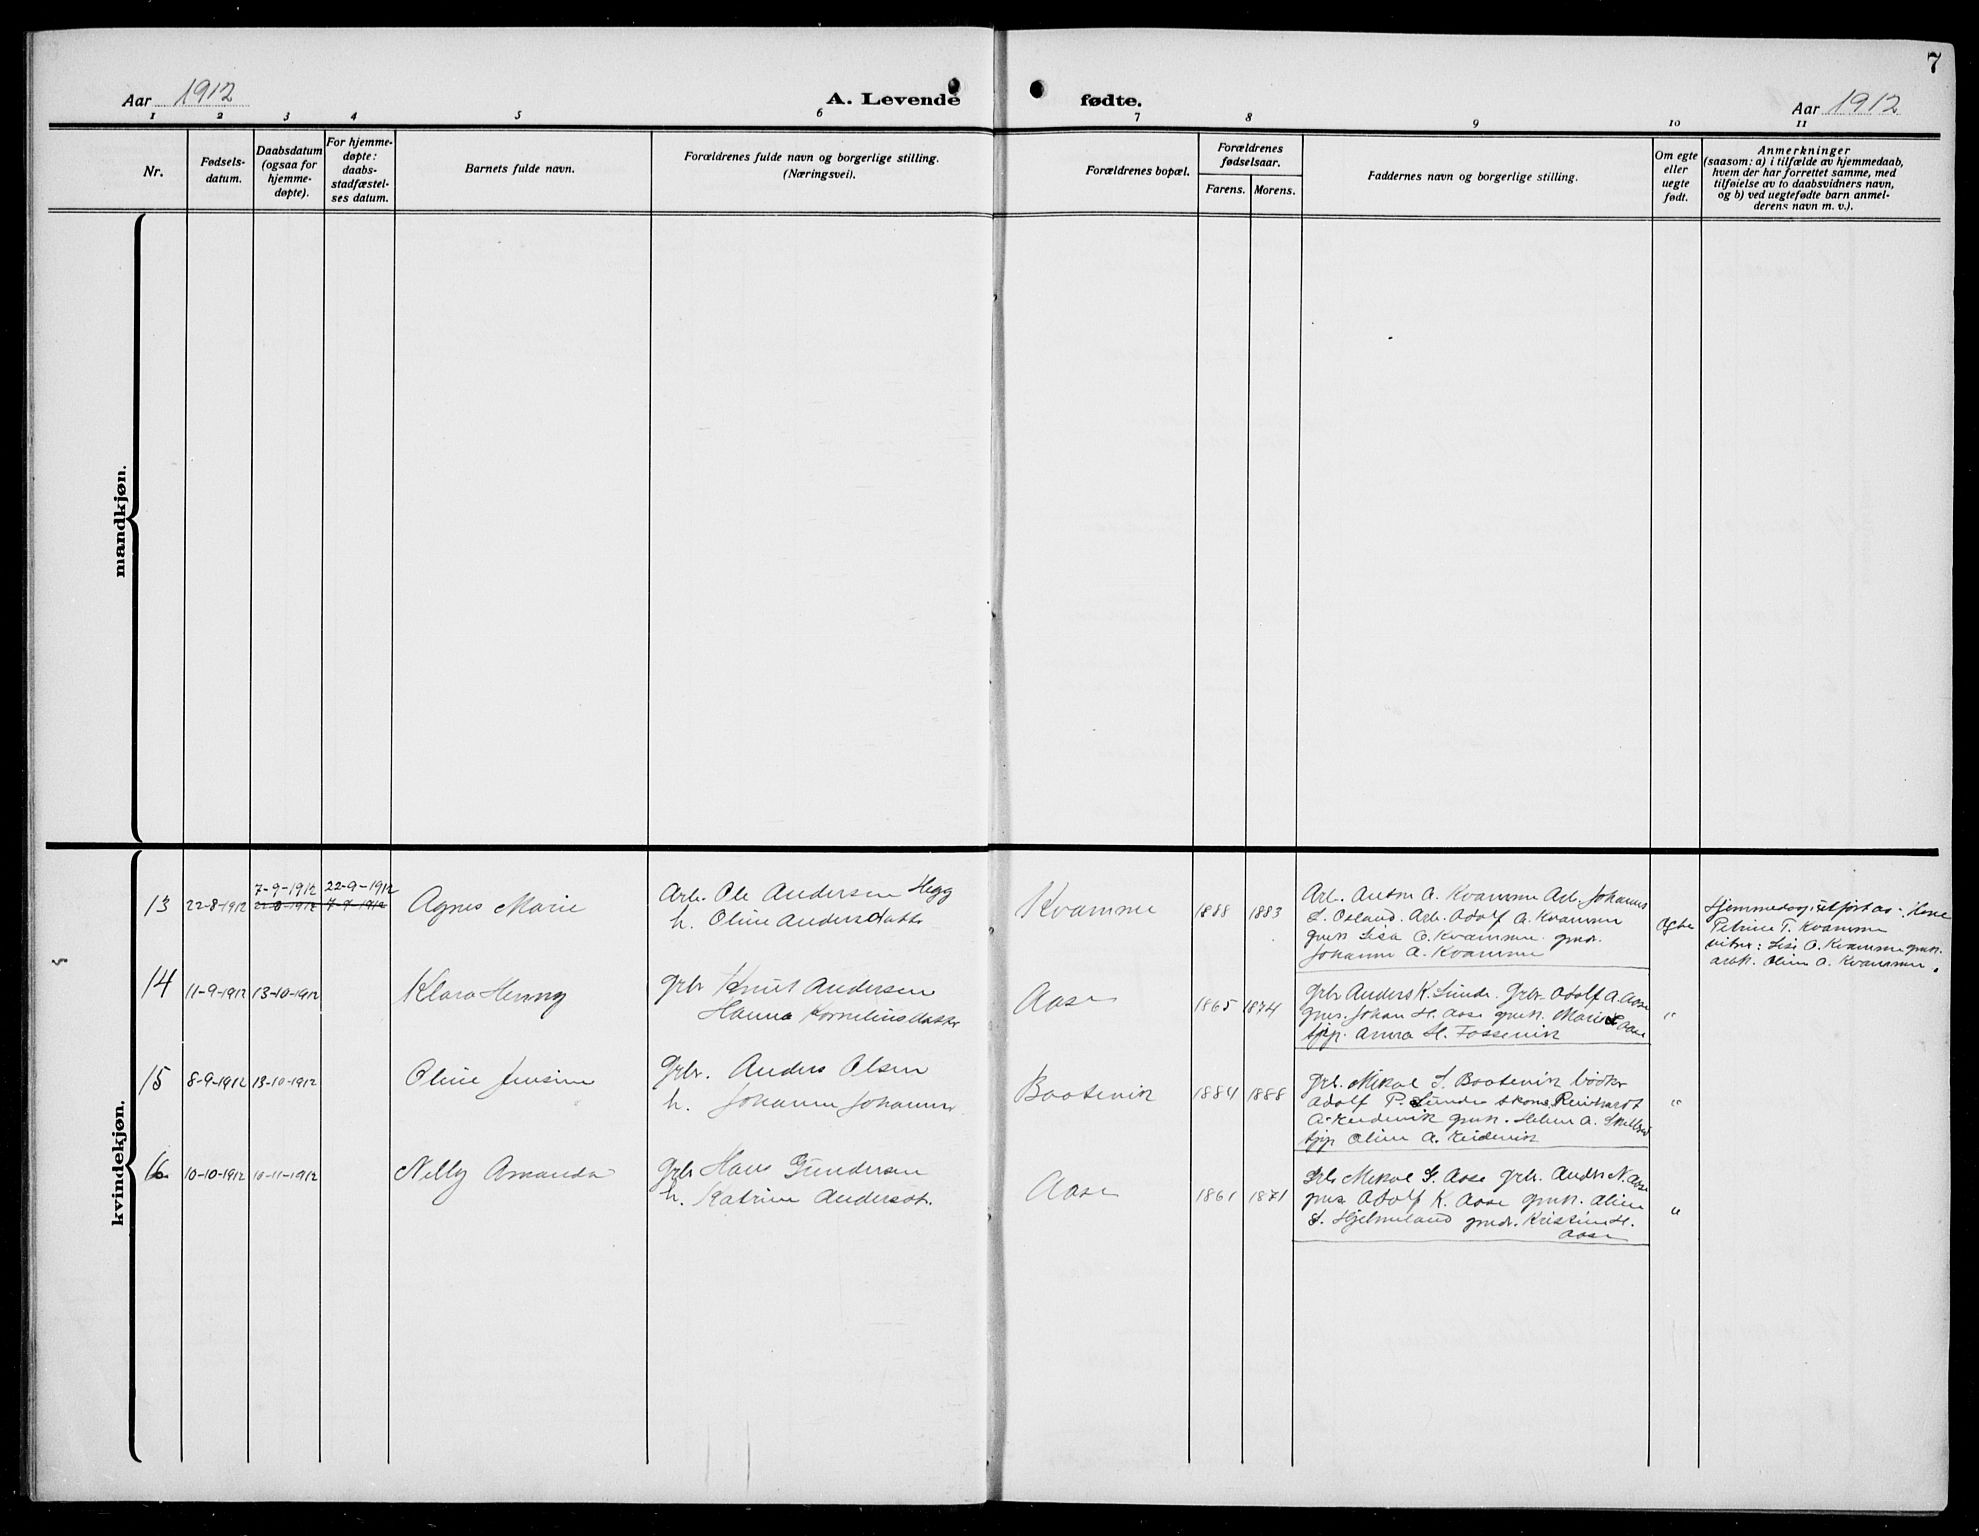 7
Aar 1912
A. Levende fødte.
Aar 1912
1 2 3 4 5 6 7 8 9 10 11
Nr.
Fødsels-
datum.
Daabsdatum
(ogsaa for
hjemme-
døpte).
For hjemme-
døpte:
daabs-
stadfæstel-
ses datum.
Barnets fulde navn.
Forældrenes fulde navn og borgerlige stilling.
(Næringsvei).
Forældrenes bopæl.
Forældrenes
fødselsaar.
Farens. Morens.
Faddernes navn og borgerlige stilling.
Om egte
eller
uegte
født.
Anmerkninger
(saasom: a) i tilfælde av hjemmedaab,
hvem der har forrettet samme, med
tilføielse av to daabsvidners navn,
og b) ved uegtefødte barn anmel-
derens navn m. v.).
mandkjøn.
kvindekjøn.
13 22-8-1912
7-9-1912
22-8-1912
22-9-1912
7-9-1912
Agnes Marie
Arb. Ole Andersen Hegg
h. Oline Andersdatter
Kvamme
1888 1883
Arb. Anton A. Kvamme Arb. Johannes
S. Osland. Arb. Adolf A. Kvamme
gmk Lisa O. Kvamme. gmdr.
Johanne A. Kvamme
egte
Petrine T. Kvamme
Lise O. Kvamme gmk.
Oline A. Kvamme.
14 11-9-1912 13-10-1912
Klara Henny
Gbr Knut Andersen
Hanna Korneliusdatter
Aase
1865 1874
Gbr Anders K. Sunde. Gbr. Adolf A. Aase
gms. Johan H. Aase gmk. Marie Aase
tjp. Anna H. Fossevik
"
15 8-9-1912 13-10-1912
Oline Jensine
Gbr. Anders Olsen
h. Johanne Johanns
Bootsvik
1884 1888
Gbr. Mikal S. Bootsvik bødker
Adolf P. Sunde skom. Reinhardt
A. gmk. Helene A.
tjp Oline A.
"
16 10-10-1912 10-11-1912
Nelly Amanda
Gbr Hans Gundersen
h. Katrine Andersdt.
Aase
1861 1871
Gbr. Mikal G. Aase Gbr. Anders N. Aase
gms Adolf K. Aase gmk. Oline
S. Hjelmeland gmdr. Kristine H.
Aase
"